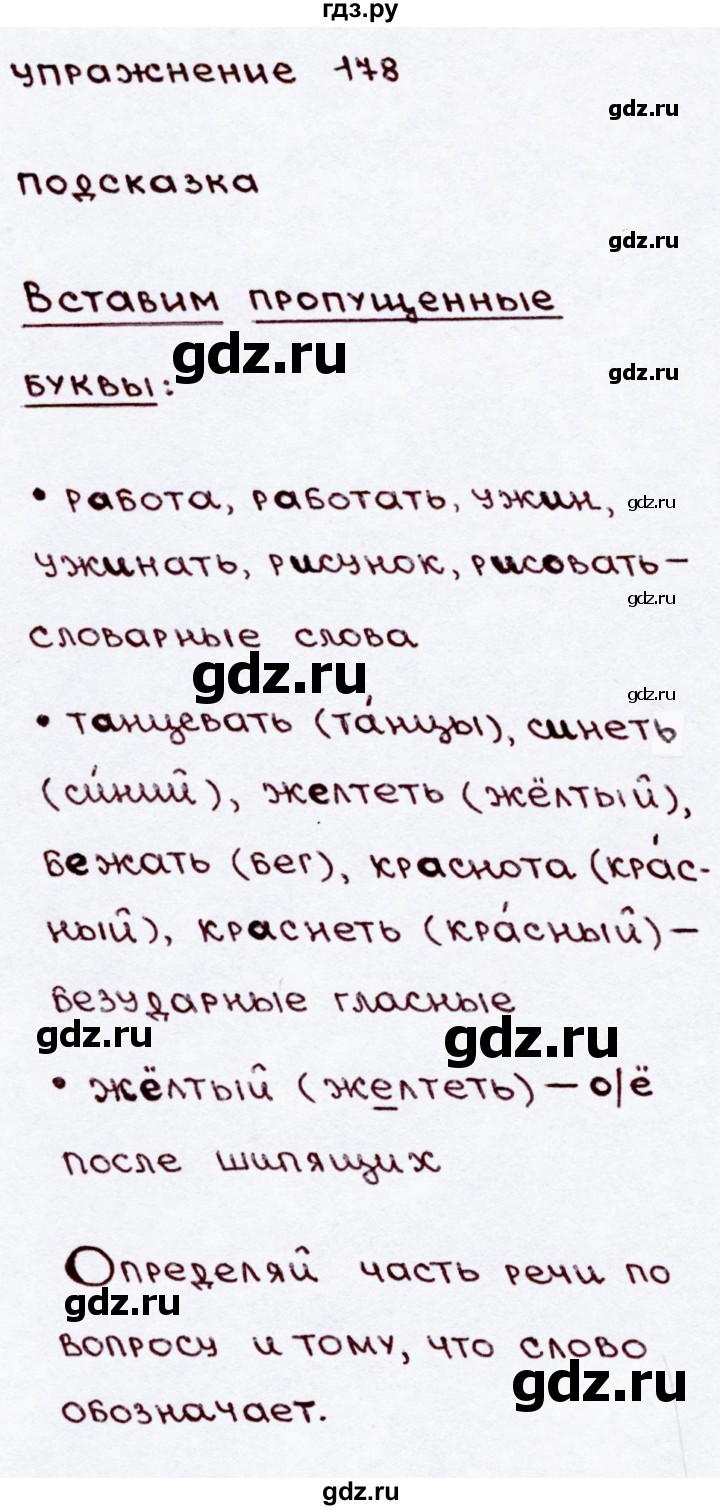 гдз.ру
упражнение 178
gdz.ru
подсказка
gdz.ru
Вставим пропущенные
gdz.ru
буквы:
gdz.ru
• работа, работать, ужин,
gdz.ru
ужинать, рисунок, рисовать –
gdz.ru
словарные слова
gdz.ru
gdz.ru
• танцевать (та́нцы), синеть
(си́ний), желтеть (жёлтый),
бежать (бег), краснота (кра́с-
ный), краснеть (кра́сный) –
безударные гласные
gdz.ru
gdz.ru
• жёлтый (желтеть) – о/ё
после шипящих
Определяй часть речи по
gdz.ru
вопросу и тому, что слово
gdz.ru
обозначает.
gdz.ru